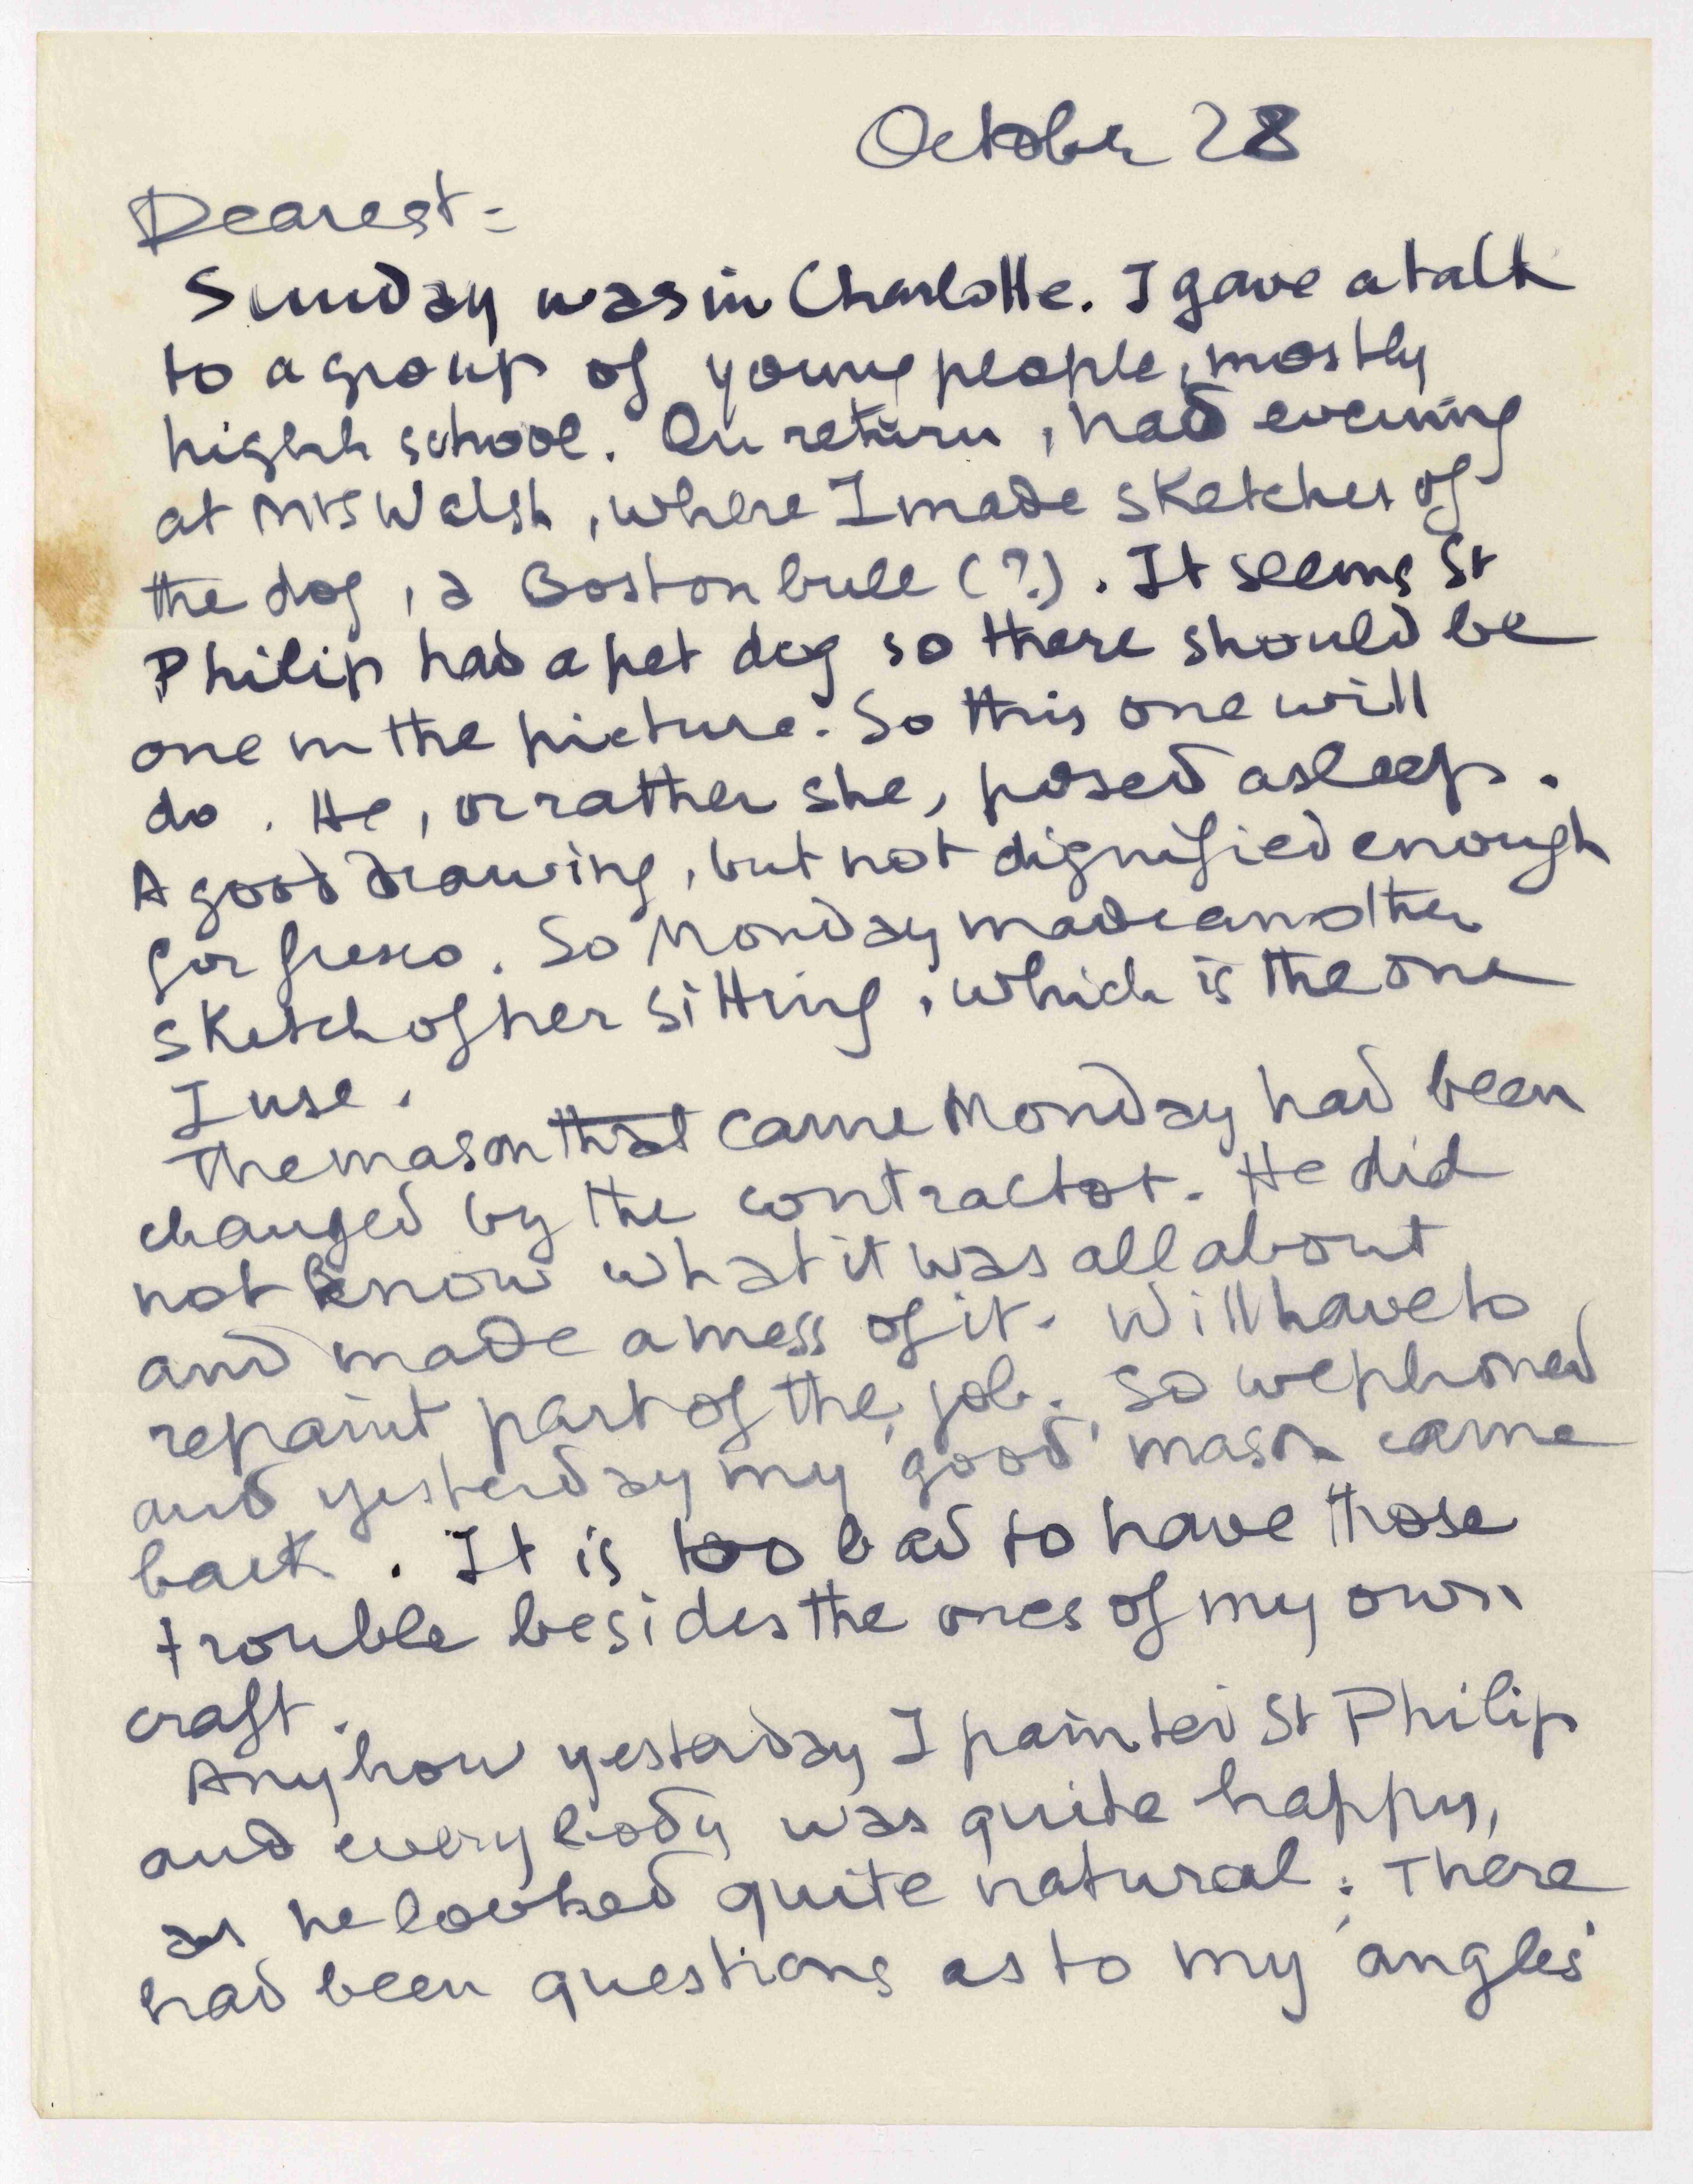 October 28
Dearest -
Sunday was in Charlotte. I gave a talk
to a group of young people, mostly
highh school. On return, had evening
at Mrs Walsh, where I made sketches of
the dog, a Boston bull (?). It seems St
Philip had a pet dog so there should be
one in the picture. So this one will
do. He, or rather she, posed asleep.
A good drawing, but not dignified enough
for fresco. So Monday made another
sketch of her sitting, which is the one
I use.
The mason that came Monday had been
changed by the contractor. He did
not know what it was all about
and made a mess of it. Will have to
repaint part of the job. So we phoned
and yesterday my 'good' mason came
back. It is too bad to have those
trouble besides the ones of my own
craft.
Anyhow yesterday I painted St Philip
and everybody was quite happy,
as he looked quite natural. There
had been questions as to my 'angles'